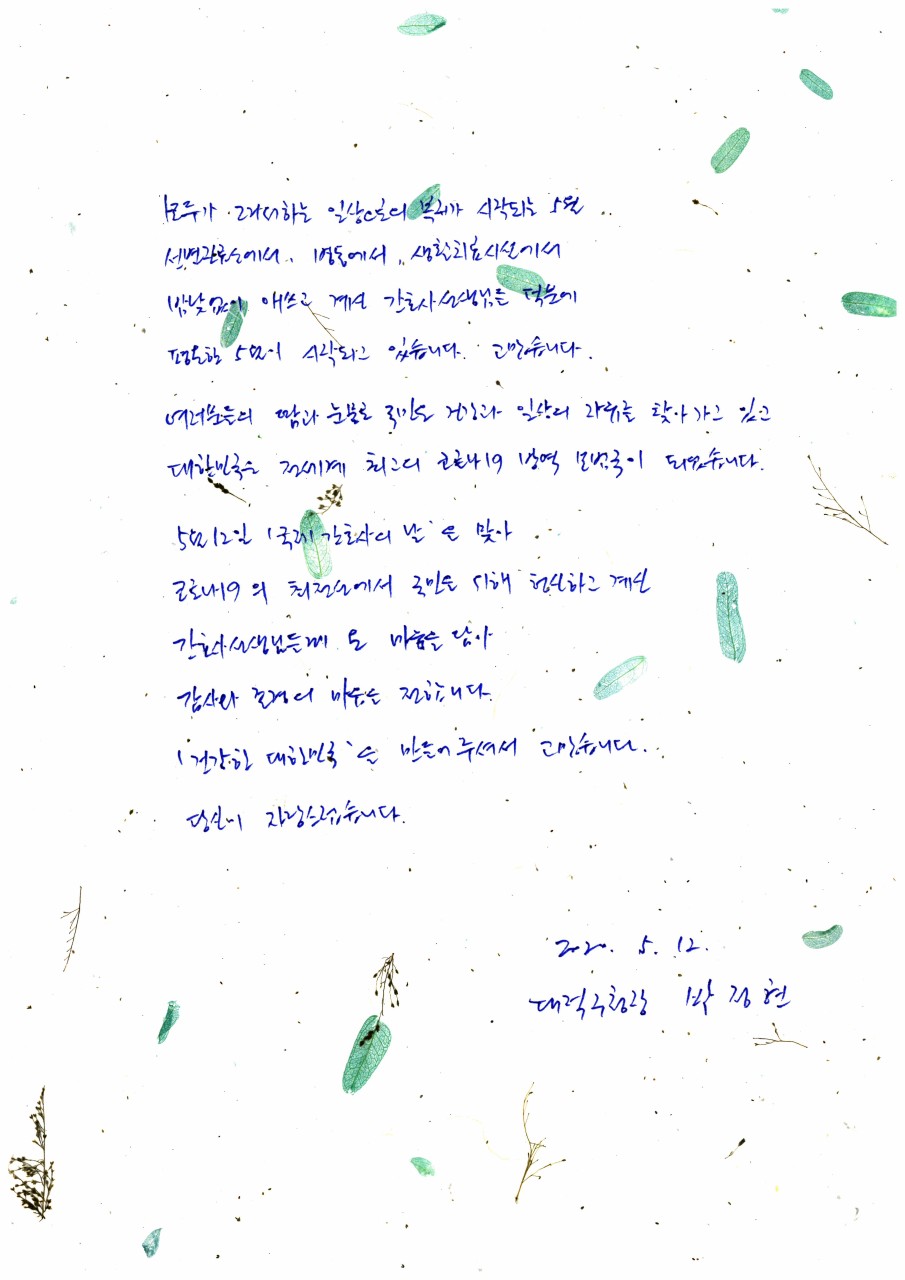 모두가 고대하는 일상으로의 복귀가 시작되는 5월
선별진료소에서, 병동에서, 생활치료시설에서
밤낮없이 애쓰고 계신 간호사선생님들 덕분에
평온한 5월이 시작되고 있습니다. 고맙습니다.
여러분들의 땀과 눈물로 국민들 건강과 일상의 자유를 찾아가고 있고
대한민국은 전세계 최고의 코로나19 방역 모범국이 되었습니다.
5월12일 '국제간호사의 날'을 맞아
코로나19의 최전선에서 국민을 위해 헌신하고 계신
간호사선생님들께 온 마음을 담아
감사와 존경의 마음을 전합니다.
'건강한 대한민국'을 만들어주셔서 고맙습니다.
당신이 자랑스럽습니다.
2020. 5. 12.
대덕구청장 박정현